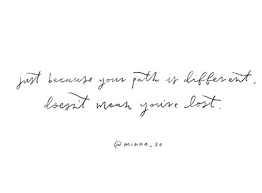 just because your path is different,
doesn't mean you're lost.
@minna_so